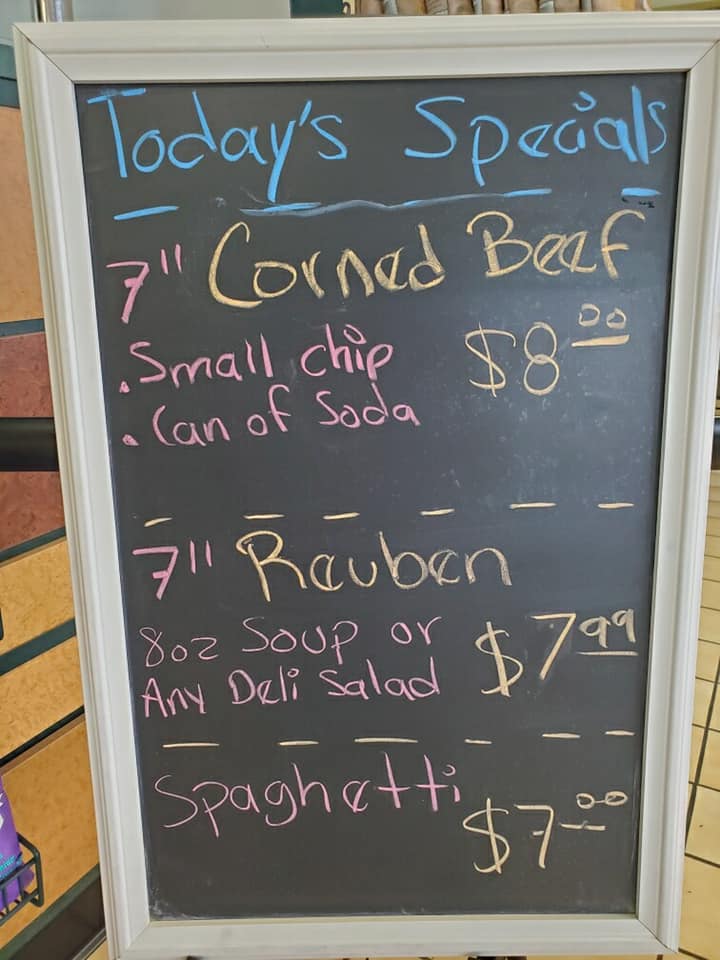 Today's Specials
7" Corned Beef
. Small chip $8 00
. Can of Soda
7" Reuben
8oz Soup or
Any Deli Salad $7 99
Spaghetti
$7 00